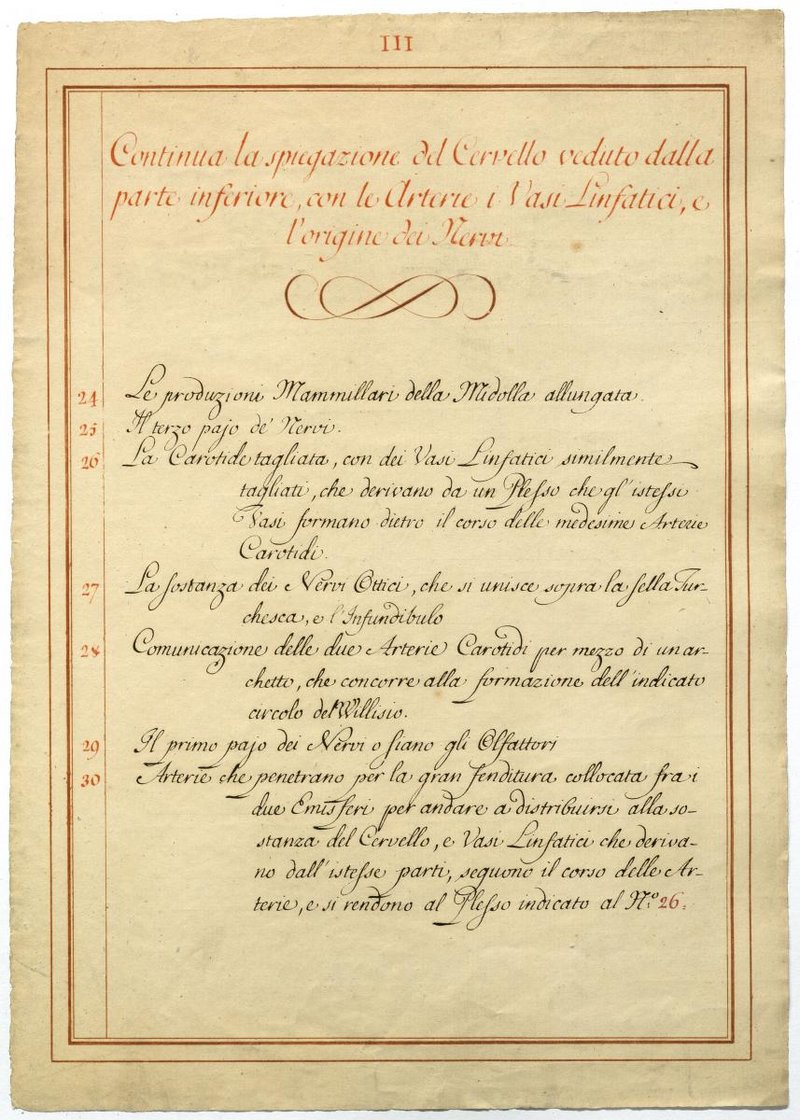 III
Continua la spiegazione del Cervello veduto dalla
parte inferiore, con le Arterie i Vasi Linfatici, e
l'origine dei Nervi
24 Le produzioni Mammillari della Midolla allungata.
25 Il terzo pajo de' Nervi.
26 La Carotide tagliata, con dei Vasi Linfatici similmente
tagliati, che derivano da un Plesso che gl'istessi
Vasi formano dietro il corso delle medesime Arterie
Carotidi.
27 La sostanza dei Nervi Ottici, che si unisce sopra la sella Tur-
chesca, e l'Infundibulo
28 Comunicazione delle due Arterie Carotidi per mezzo di un ar-
chetto, che concorre alla formazione dell'indicato
circolo del Willisio.
29 Il primo pajo dei Nervi o siano gli Olfattori
30 Arterie che penetrano per la gran fenditura collocata fra i
due Emisferi per andare a distribuirsi alla so-
stanza del Cervello, e Vasi Linfatici che deriva-
no dall'istesse parti, seguono il corso delle Ar-
terie, e si rendono al Plesso indicato al N.º 26.